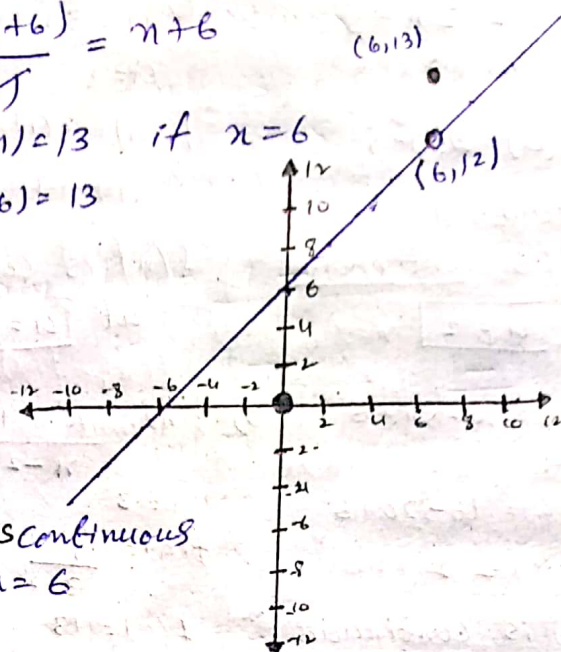 +6) = x+6
(6,13)
x)=13 if x=6
6) = 13
(6,12)
12
10
8
6
4
2
-12 -10 -8 -6 -4 -2
2 4 6 8 10 12
-2
-4
-6
-8
-10
-12
scontinuous
x = 6